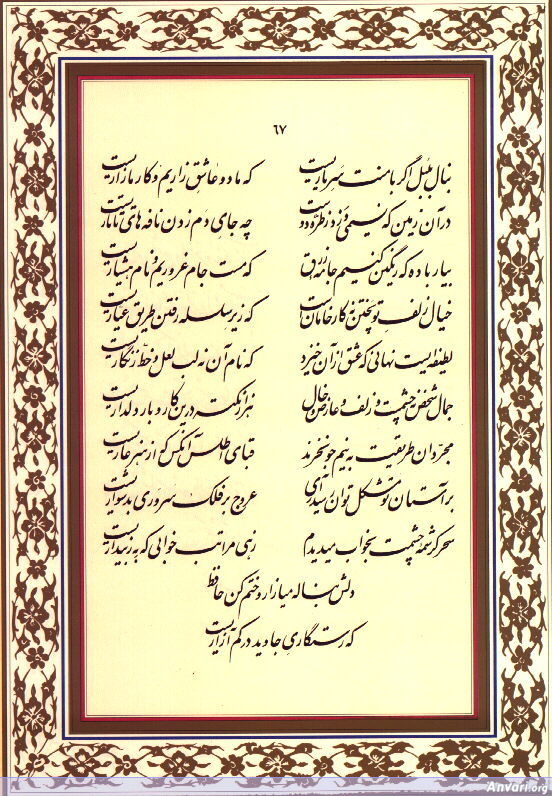 ٦٧
بنال بلبل اگر با منت سر یاریست که ما دو عاشق زاریم و کار ما زاریست
در آن زمین که نسیمی وزد ز طرّه دوست چه جای دم زدن نافه‌های تاتاریست
بیار باده که رنگین کنیم جامه زرق که مست جام غروریم و نام هشیاریست
خیال زلف تو پختن نه کار خامان است که زیر سلسله رفتن طریق عیاریست
لطیفه‌ایست نهانی که عشق از آن خیزد که نام آن نه لب لعل و خطّ زنگاریست
جمال شخص نه چشمست و زلف و عارض و خال هزار نکته درین کار و بار دلداریست
مجرّدان طریقت به نیم جو نخرند قبای اطلس آنکس که از هنر عاریست
بر آستان تو مشکل توان رسید آری عروج بر فلک سروری بدشواریست
سحر کرشمهٔ چشمت بخواب میدیدم زهی مراتب خوابی که به ز بیداریست
دلش بناله میازار و ختم کن حافظ
که رستگاری جاوید در کم آزاریست
Anvari.org